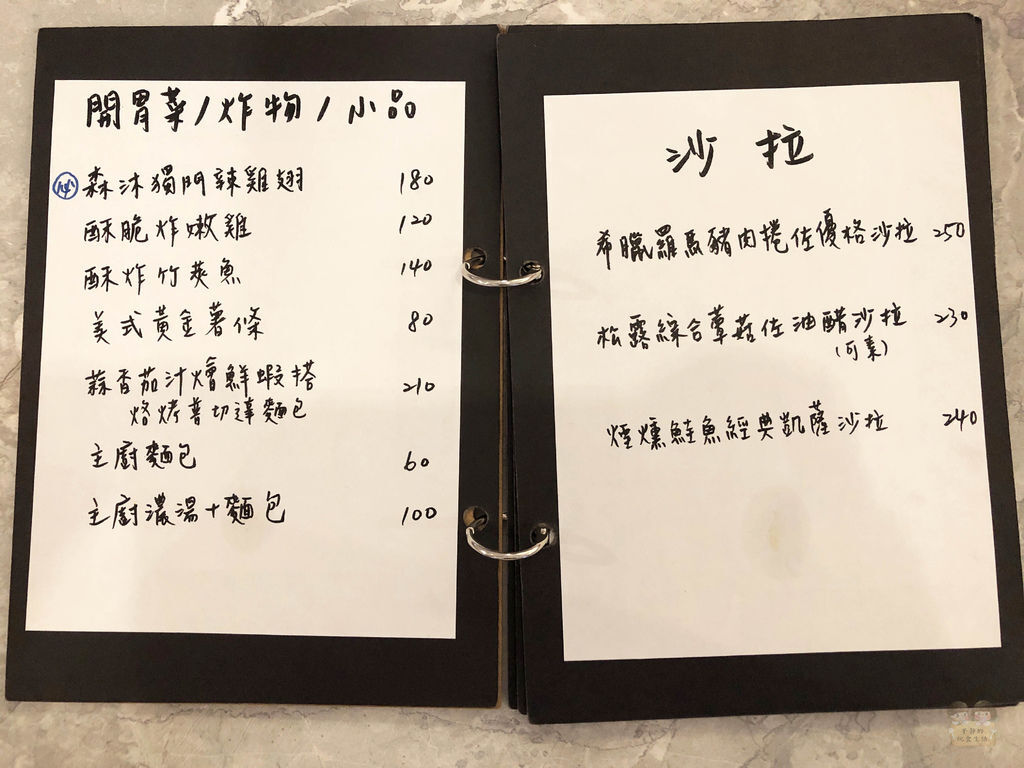 開胃菜/炸物/小品
森沐獨門辣雞翅 180
酥脆炸嫩雞 120
酥炸竹莢魚 140
美式黃金薯條 80
蒜香茄汁燴鮮蝦搭 210
烙烤普切達麵包
主廚麵包 60
主廚濃湯+麵包 100
沙拉
希臘羅馬豬肉捲佐優格沙拉 250
松露綜合蕈菇佐油醋沙拉 230
(可素)
煙燻鮭魚經典凱薩沙拉 240